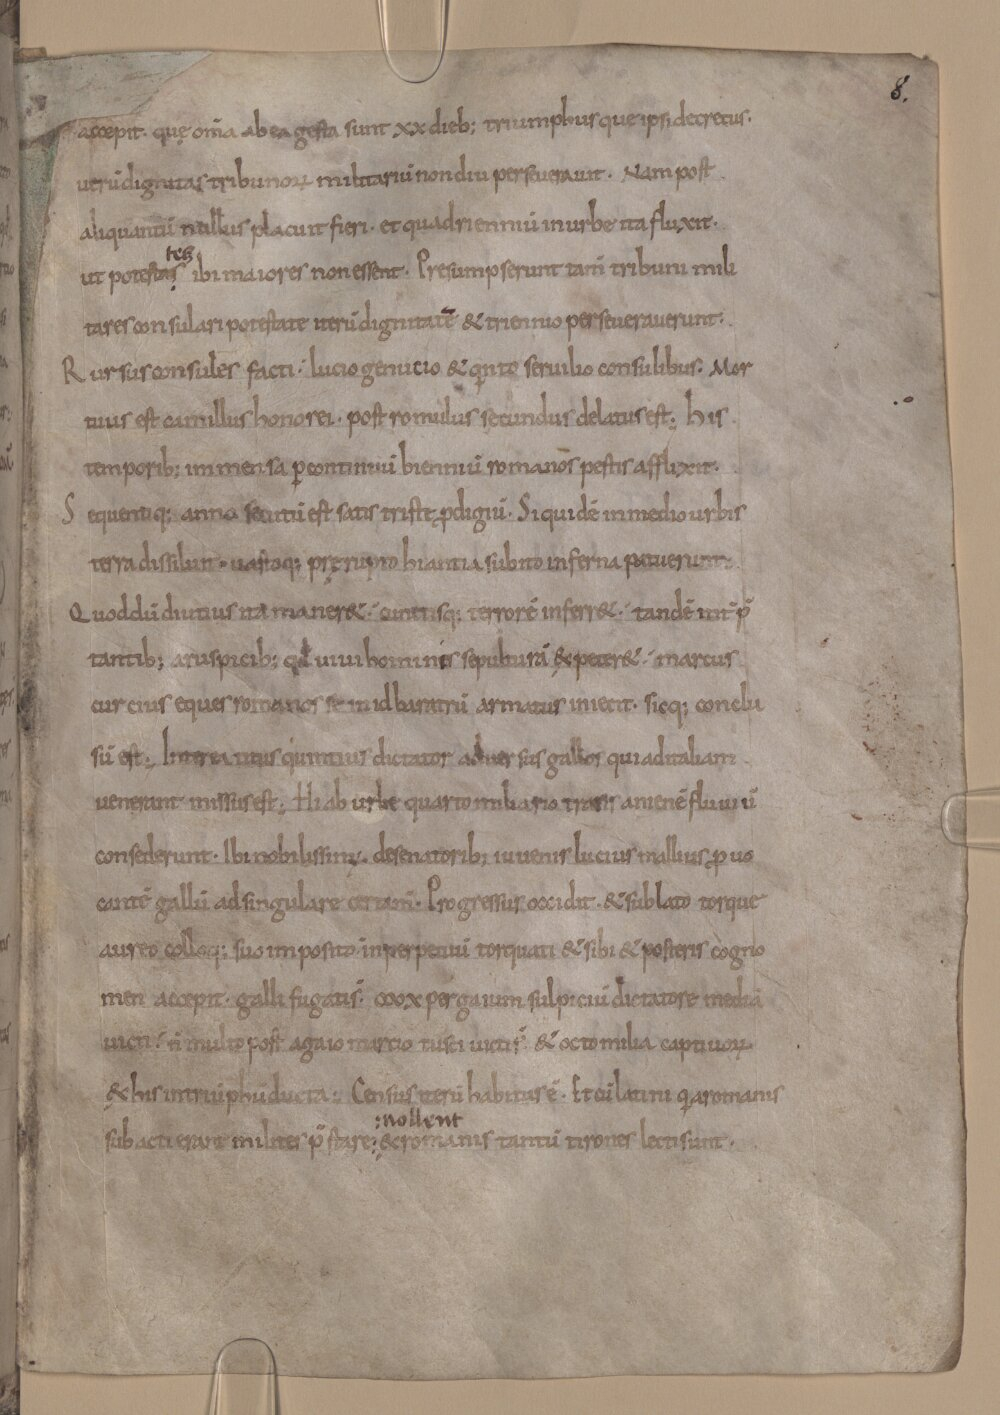 8.
accepit. quę om̄a ab ea gesta sunt xx dieb; triumphusque ipsi decretus.
uerū dignitas tribunoꝝ militariū non diu perseuerauit. Nam post
aliquantū nullus placuit fieri. et quadrienniū in urbe ita fluxit.
tes
ut potestas ibi maiores non essent. Presumpserunt tam̄ tribuni mili
tares consulari potestate iterū dignitatē & triennio perseuerauerunt.
Rursus consules facti. lucio genucio & quinto seruilio consulibus. Mor
tuus est camillus honor ei. post romulus secundus delatus est; His
temporib; immensa ꝑ continuū bienniū romanos pestis afflixit.
Sequentiq; anno secutū est satis triste ꝓdigiū. Siquidē in medio urbis
terra dissiluit. uastoq; pręrupto hiantia subito inferna patuerunt.
Quod dū diutius ita maner&. cunctisq; terrorē inferr&. tandē int̄p̄
tantib; aruspicib; qd uiui hominis sepulturā expeter&. marcus
curcius eques romanos se in id baratrū armatus iniecit. sicq; conclu
sū est. Interea titus quintius dictator aduersus gallos qui ad italiam
uenerant missus est. Hi ab urbe quarto miliario trans anienē fluuiū
consederunt. Ibi nobilissimꝰ de senatorib; iuuenis lucius mallius ꝓuo
cantē gallū ad singulare certam̄. Progressus occidit. & sublato torque
aureo colloq; suo imposito. in perpetuū torquati & sibi & posteris cogno
men accepit. galli fugatis. mox per gaium sulpiciū dictatore mediā
uicti. n̄ multo post a gaio marcio tusci uicti s̄ & octo milia captiuoꝝ
& his in triūphū ducta. Census iterū habitus ē. Et cū latini q̄ a romanis
:nollent
subacti erant milites p̄stare: & romanis tantū tirones lecti sunt.